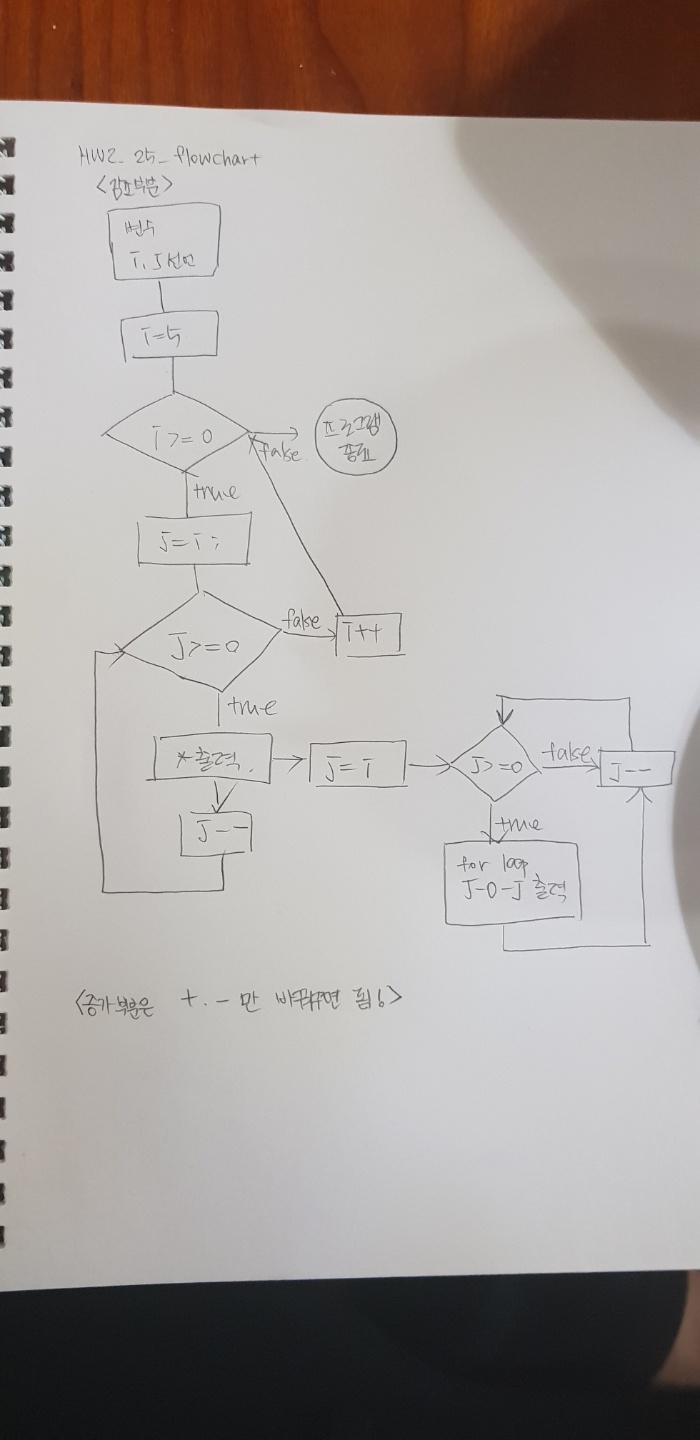 HW2_25_flowchart
<감소부분>
변수
i, J 선언
i=5
i>=0
false
프로그램
종료
true
J=i;
J>=0
false
i++
true
*출력.
J=i
J>=0
false
J--
J--
true
for loop
J-0-J 출력
<증가부분은 +. - 만 바꿔주면 됨!>